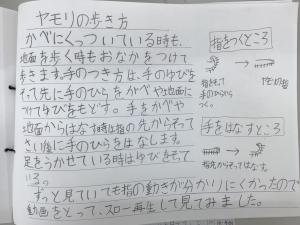 ヤモリの歩き方
かべにくっついている時も、
地面を歩く時もおなかをつけて
歩きます。手のつき方は、手のゆびを
そって先に手のひらをかべや地面に
つけてゆびをもどす。手をかべや
地面からはなす時は指の先からそって
さい後に手のひらをはなします。
足をうかせている時はゆびをそって
いる。
ずっと見ていても指の動きが分かりにくかったので
動画をとって、スロー再生して見てみました。
指をつくところ
指をそって
手のひらから
つく。
手をはなすところ
指先からそってはなす。